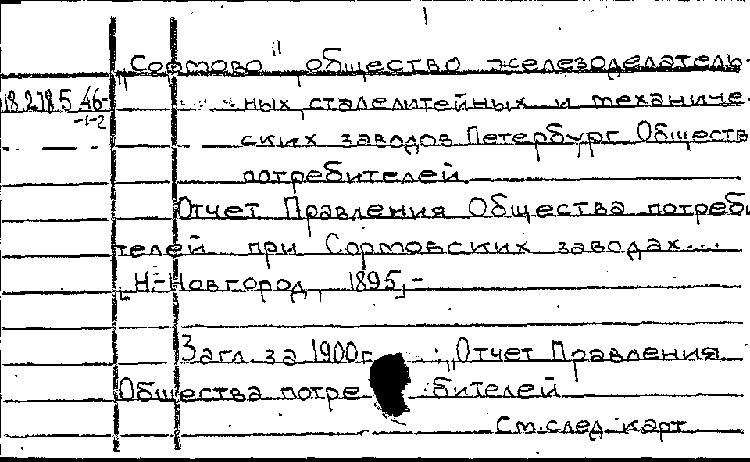 "Сормово" общество железоделатель-
18.278.5.46- ных, сталелитейных и механиче-
-1-2
ских заводов Петербург. Обществ
потребителей.
Отчет Правления Общества потреби
телей при Сормовских заводах...
Н.-Новгород, 1895,-
Загл. за 1900г. : "Отчет Правления
Общества потре бителей
См. след. карт